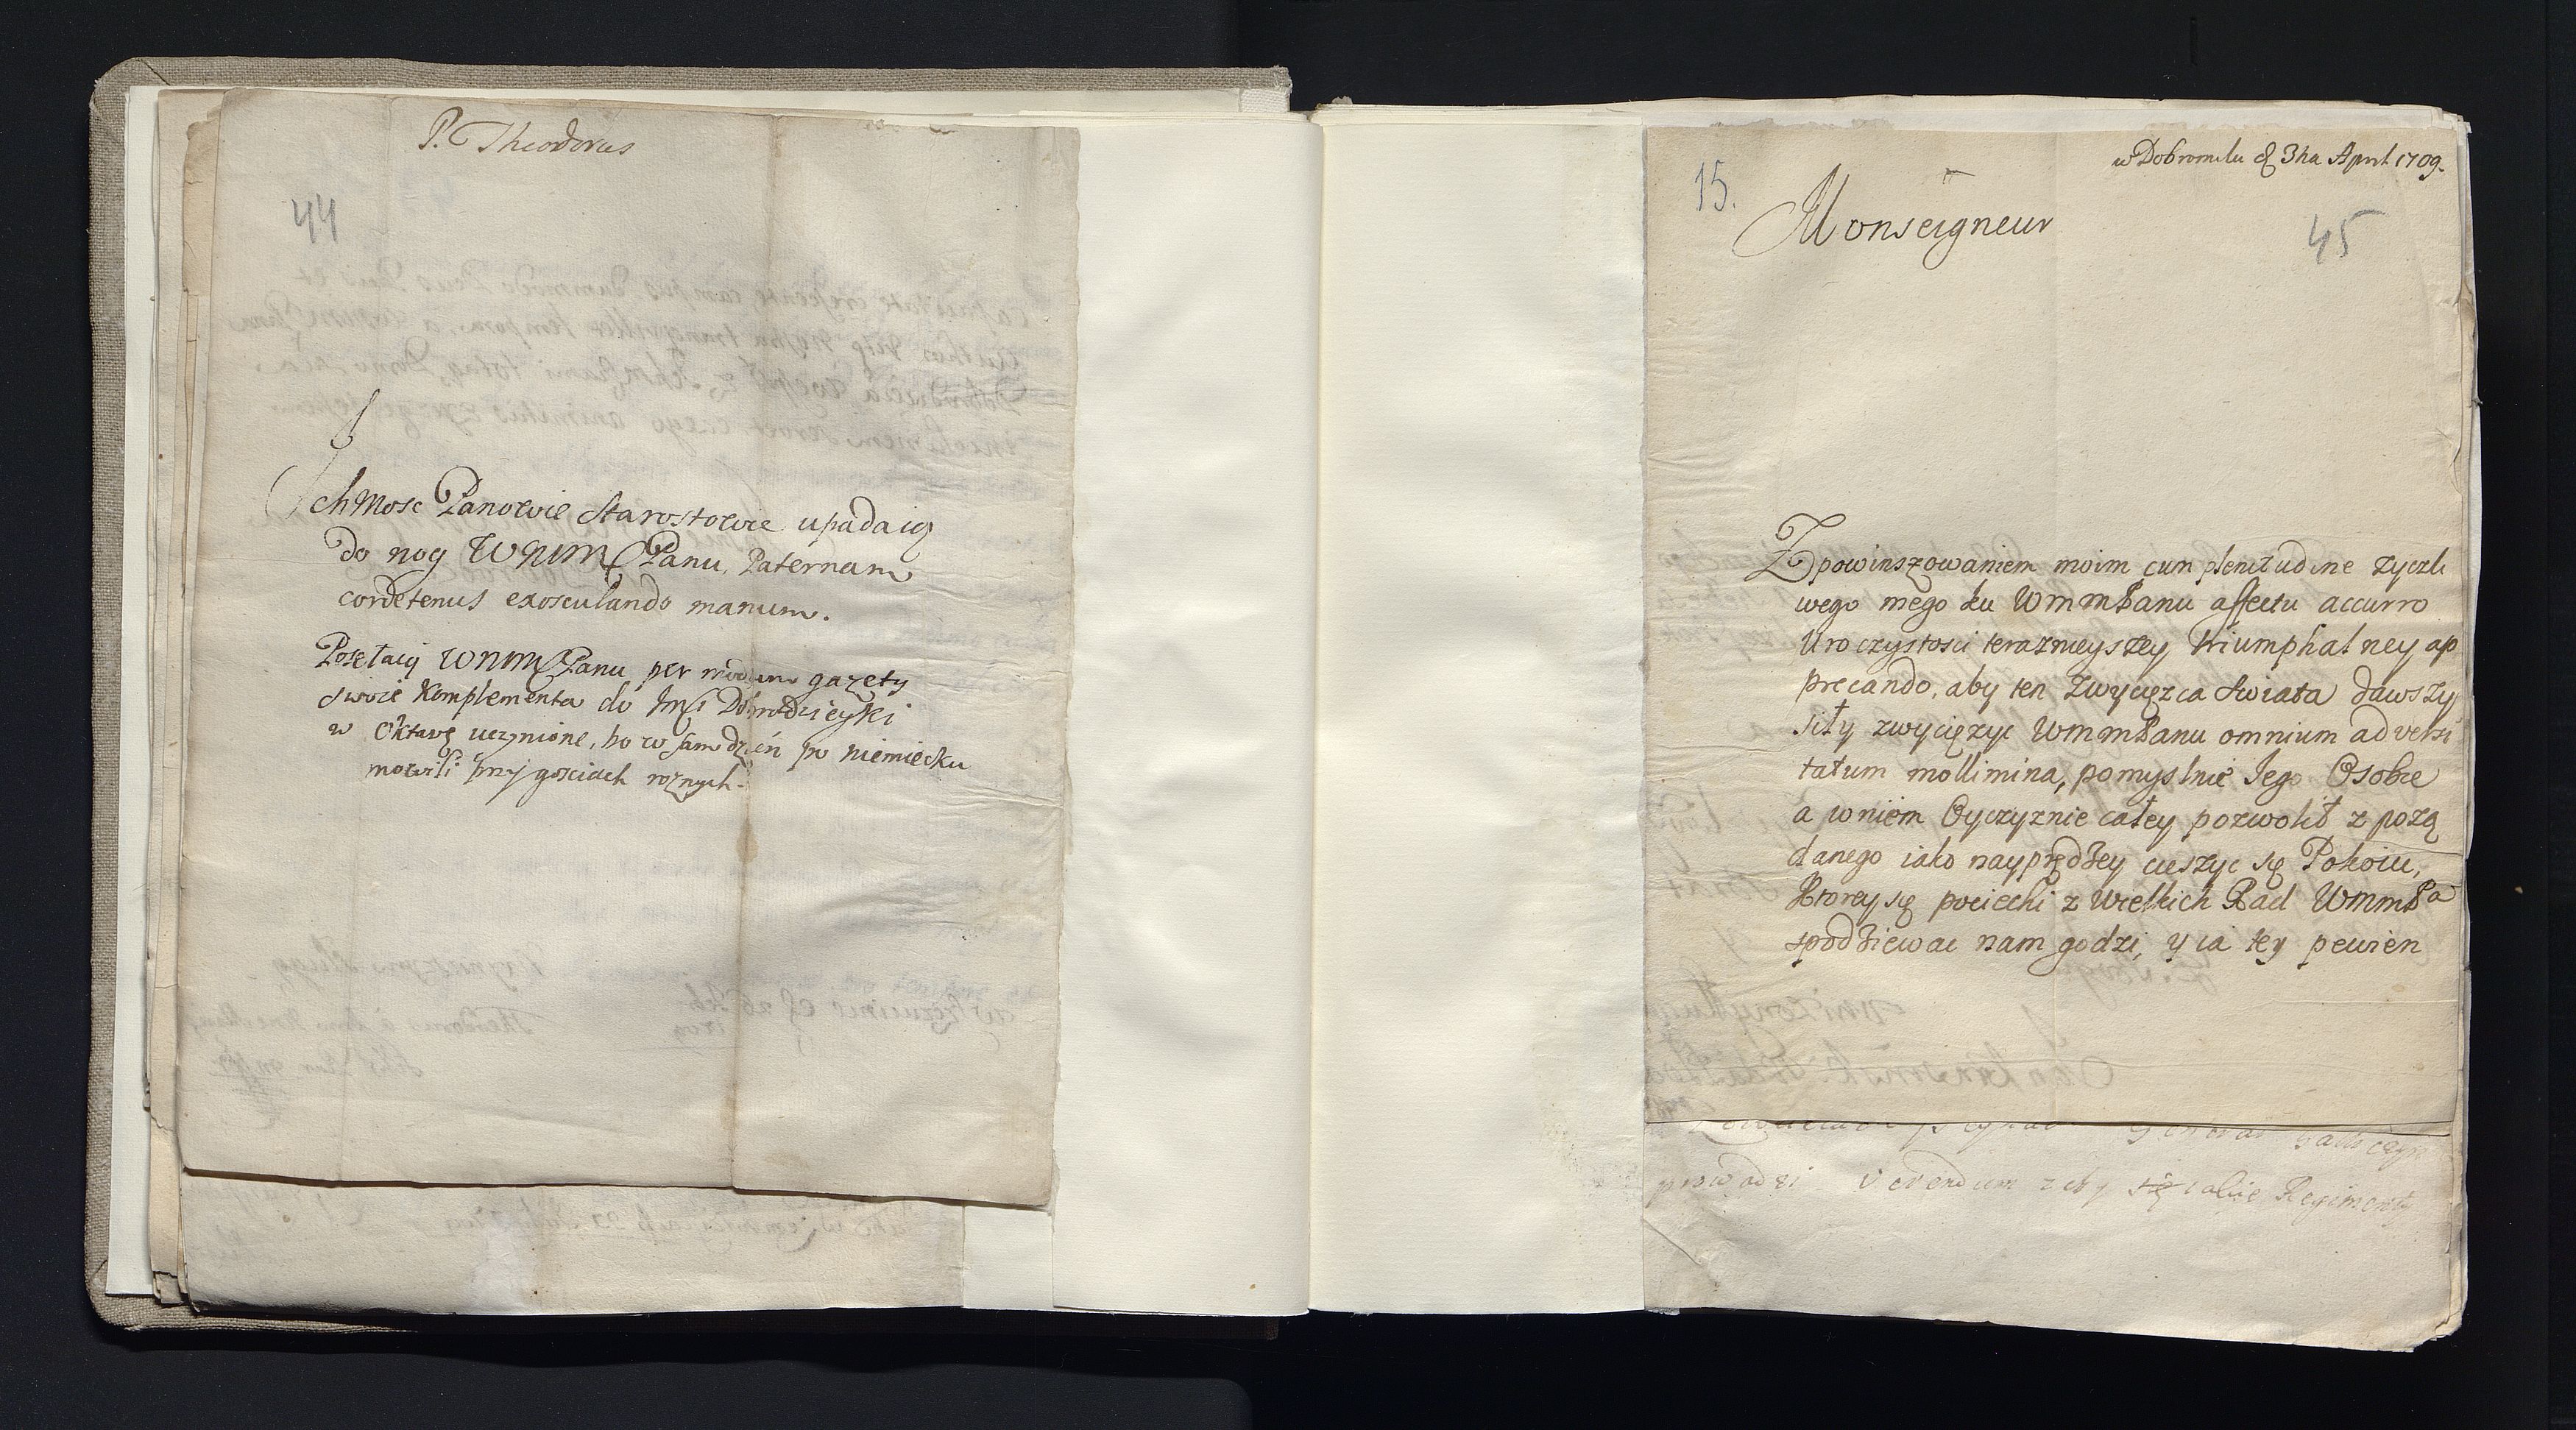 P. Theodorus
44
IchMosc Panowie Starostowie upadaią
do nog WMM Panu, Paternam
cordetenus exosculando manum.
Posełaią WMM Panu per modum gazety
swoie Komplementa do Jmći Dobrodzieyki
w Oktawę uczynione, bo w sam dzień po niemiecku
mowili przy gosciach roznych.
w Dobromilu d 3tia April 1709.
15.
Monseigneur
45
Z powinszowaniem moim cum plenitudine zyczli
wego mego ku WmmPanu affectu accurro
Uroczystosci teraznieyszey triumphalney ap
precando, aby ten Zwyciężca Swiata dawszy
siły zwyciężyc WmmPanu omnium adversi
tatum mollimina, pomyslnie Jego Osobie
a wniem Oyczyznie całey pozwolił z pożą
danego iako nayprędzey cieszyc się Pokoiu,
Ktorey się pociechi z Wielkich Rad WmmPa
spodziewac nam godzi, y ia tey pewien
prowadzi verendum zeby się całie Regimenty